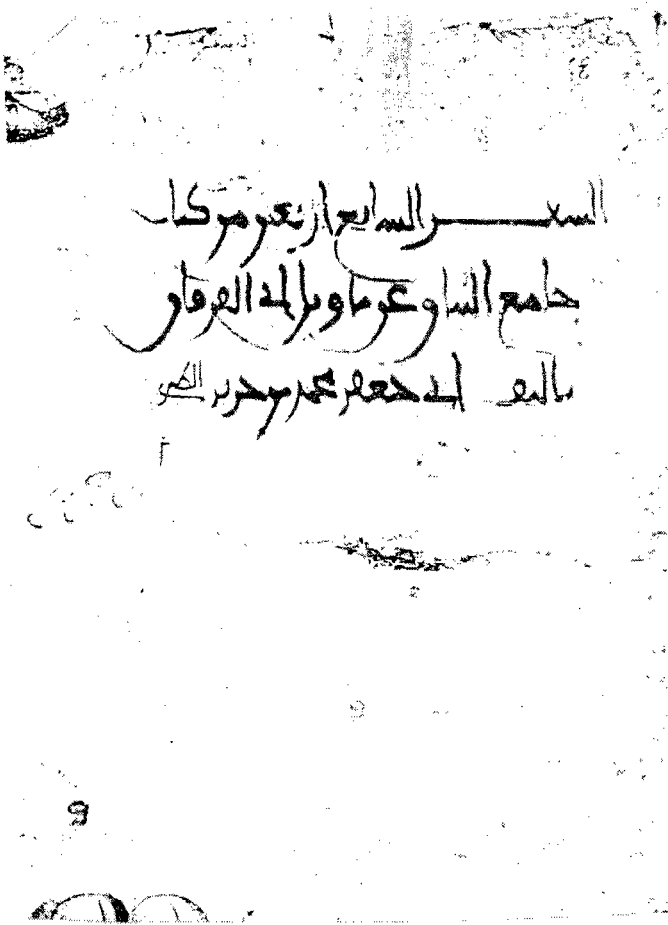 السفر السابع اربعين من كتاب
جامع البيان عن تاويل اى الفرقان
تاليف ابى جعفر محمد بن جرير الطبرى